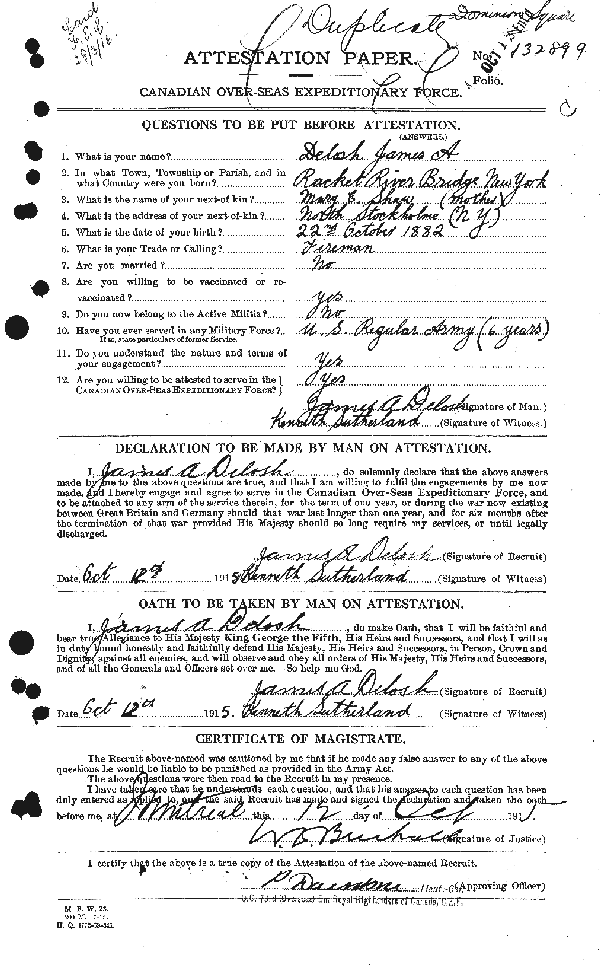 Duplicate
Dominion Square
ATTESTATION PAPER.
No. 132899
Folio.
CANADIAN OVER-SEAS EXPEDITIONARY FORCE.
QUESTIONS TO BE PUT BEFORE ATTESTATION.
(ANSWERS)
1. What is your name? Delosh James A
2. In what Town, Township or Parish, and in
what Country were you born? Racket River Bridge New York
3. What is the name of your next-of-kin? Mary E. Sharp (mother)
4. What is the address of your next-of-kin? North Stockholme (N Y)
5. What is the date of your birth? 22nd October 1882
6. What is your Trade or Calling? Fireman
7. Are you married? No
8. Are you willing to be vaccinated or re-
vaccinated? Yes
9. Do you now belong to the Active Militia? No
10. Have you ever served in any Military Force? U. S. Regular Army (6 years)
If so, state particulars of former Service.
11. Do you understand the nature and terms of
your engagement? Yes
12. Are you willing to be attested to serve in the
CANADIAN OVER-SEAS EXPEDITIONARY FORCE? Yes
James A Delosh (Signature of Man.)
Kenneth Sutherland (Signature of Witness.)
DECLARATION TO BE MADE BY MAN ON ATTESTATION.
I, James A Delosh, do solemnly declare that the above answers
made by me to the above questions are true, and that I am willing to fulfil the engagements by me now
made, and I hereby engage and agree to serve in the Canadian Over-Seas Expeditionary Force, and
to be attached to any arm of the service therein, for the term of one year, or during the war now existing
between Great Britain and Germany should that war last longer than one year, and for six months after
the termination of that war provided His Majesty should so long require my services, or until legally
discharged.
James A Delosh (Signature of Recruit)
Date Oct 12th 1915 Kenneth Sutherland (Signature of Witness)
OATH TO BE TAKEN BY MAN ON ATTESTATION.
I, James A Delosh, do make Oath, that I will be faithful and
bear true Allegiance to His Majesty King George the Fifth, His Heirs and Successors, and that I will as
in duty bound honestly and faithfully defend His Majesty, His Heirs and Successors, in Person, Crown and
Dignity, against all enemies, and will observe and obey all orders of His Majesty, His Heirs and Successors,
and of all the Generals and Officers set over me. So help me God.
James A Delosh (Signature of Recruit)
Date Oct 12th 1915. Kenneth Sutherland (Signature of Witness)
CERTIFICATE OF MAGISTRATE.
The Recruit above-named was cautioned by me that if he made any false answer to any of the above
questions he would be liable to be punished as provided in the Army Act.
The above questions were then read to the Recruit in my presence.
I have taken care that he understands each question, and that his answer to each question has been
duly entered as replied to, and the said Recruit has made and signed the declaration and taken the oath
before me, at Montreal this 12 day of Oct 191
(Signature of Justice)
I certify that the above is a true copy of the Attestation of the above-named Recruit.
Lieut-Col (Approving Officer)
O.C. 73rd Overseas Bn. Royal Highlanders of Canada, C.E.F.
M. F. W. 23.